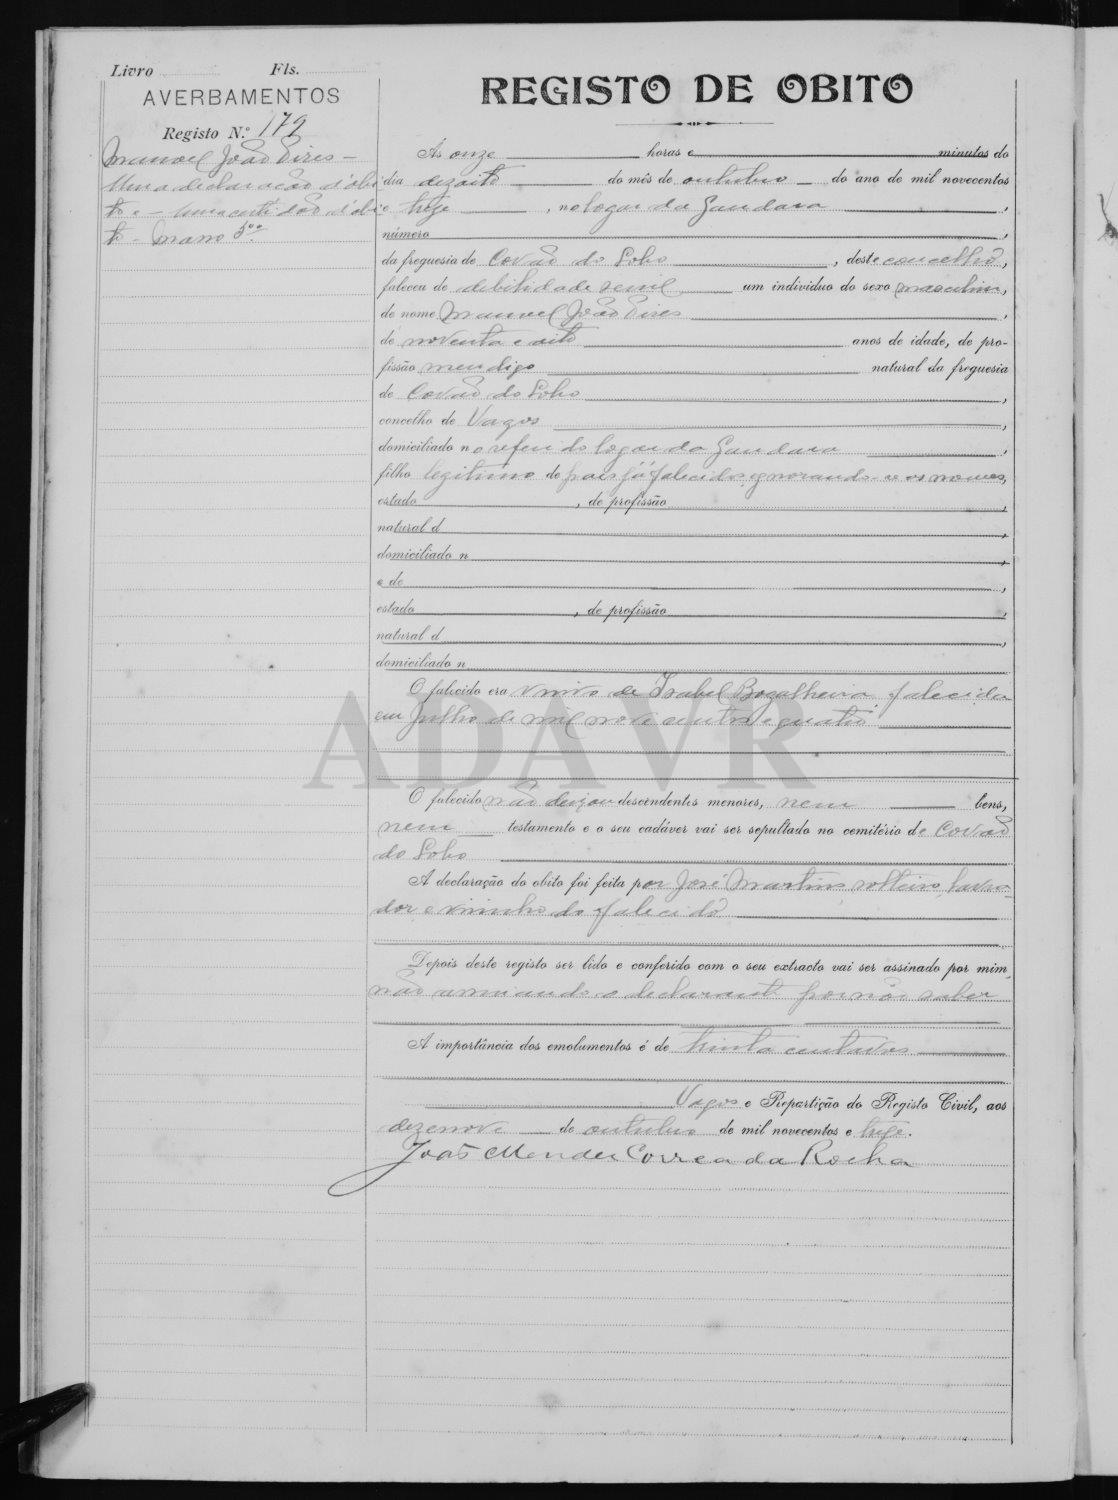 Livro Fls.
AVERBAMENTOS
Registo N.º 179
Manoel João Pires -
Uma declaração d'obi
to e - Uma certidão d'obi
to - Março 5º
REGISTO DE OBITO
Ás onze horas e minutos do
dia dezoito do mês de outubro do ano de mil novecentos
e treze, no logar da Gandara,
número,
da freguesia de Covão do Lobo, deste concelho,
faleceu de debilidade senil um individuo do sexo masculino,
de nome Manuel João Pires,
de noventa e oito anos de idade, de pro-
fissão mendigo natural da freguesia
de Covão do Lobo,
concelho de Vagos,
domiciliado no referido logar da Gandara,
filho legitimo de paes já falecidos, ignorando-se os nomes,
estado, de profissão,
natural d,
domiciliado n,
e de,
estado, de profissão,
natural d,
domiciliado n
O falecido era viuvo de Isabel Bogalheira, falecida
em Julho de mil nove centos e quatro
ADAVR
O falecido não deixou descendentes menores, nem bens,
nem testamento e o seu cadáver vai ser sepultado no cemitério de Covão
do Lobo
A declaração do obito foi feita por José Martins, solteiro, lavra-
dor e visinho do falecido
Depois deste registo ser lido e conferido com o seu extracto vai ser assinado por mim,
não assinando o declarante por não saber
A importância dos emolumentos é de trinta centavos
Vagos e Repartição do Registo Civil, aos
dezenove de outubro de mil novecentos e treze.
João Mendes Correa da Rocha